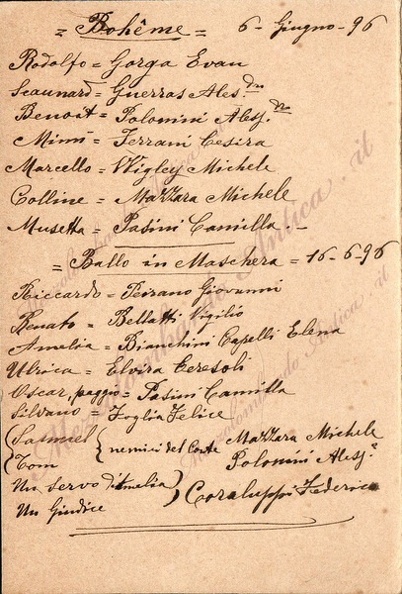 = Bohême = 6 - Giugno - 96
Rodolfo = Gorga Evan
Scaunard = Guerras Alesdro
Benoit = Polomini Alessdro
Mimi = Ferrani Cesira
Marcello = Wigley Michele
Colline = Mazzara Michele
Musetta = Pasini Camilla -
= Ballo in Maschera = 16-6-96
Riccardo = Peirano Giovanni
Renato = Bellatti Vigilio
Amelia = Bianchini Capelli Elena
Ulrica = Elvira Ceresoli
Oscar, paggio = Pasini Camilla
Silvano = Foglia Felice
(Samuel { nemici del Conte Mazzara Michele
(Tom Polomini Aless.
Un servo d'Amelia ) Coraluppi Federico
Un Giudice
Mezzolombardo Antica . it
Mezzolombardo Antica . it